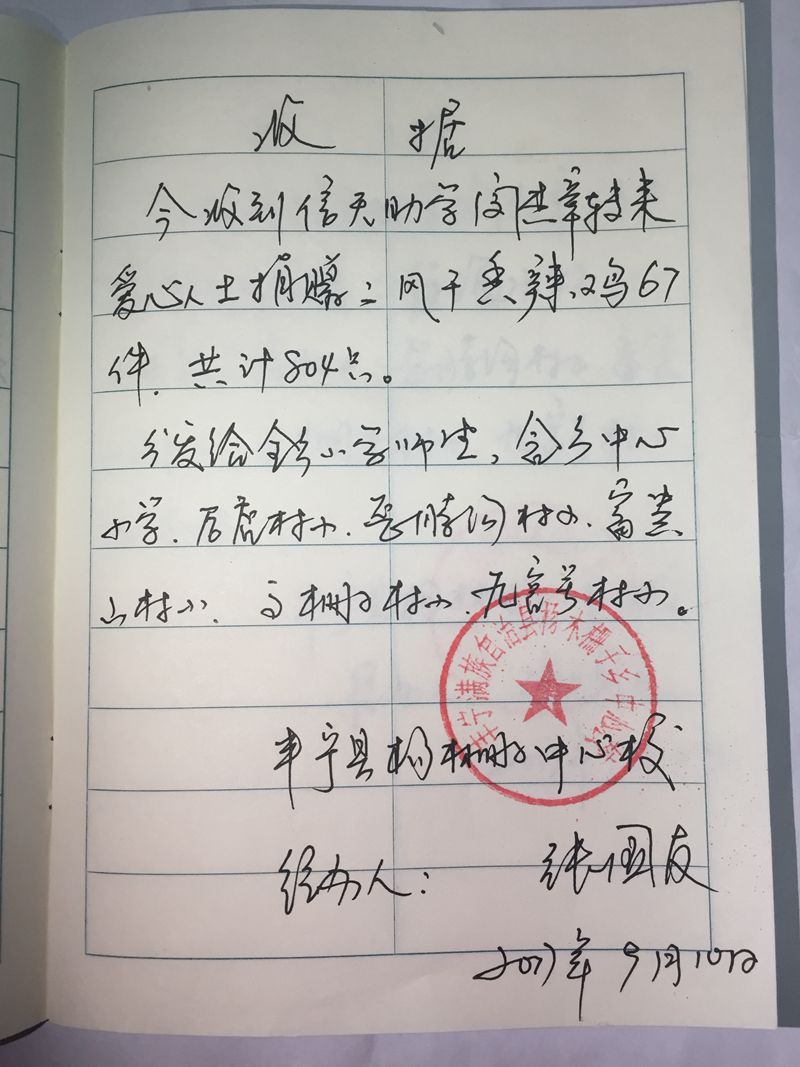 收 据
今收到信天助学闵杰章转来
爱心人士捐赠：风干香辣鸡67
件，共计804只。
分发给全乡小学师生，含乡中心
小学、
村小、
村小、
山村小、
栅子村小、
号村小。
丰宁满族自治县杨木栅子乡中心校
丰宁县杨木栅子中心校
经办人： 张国友
2017年9月10日